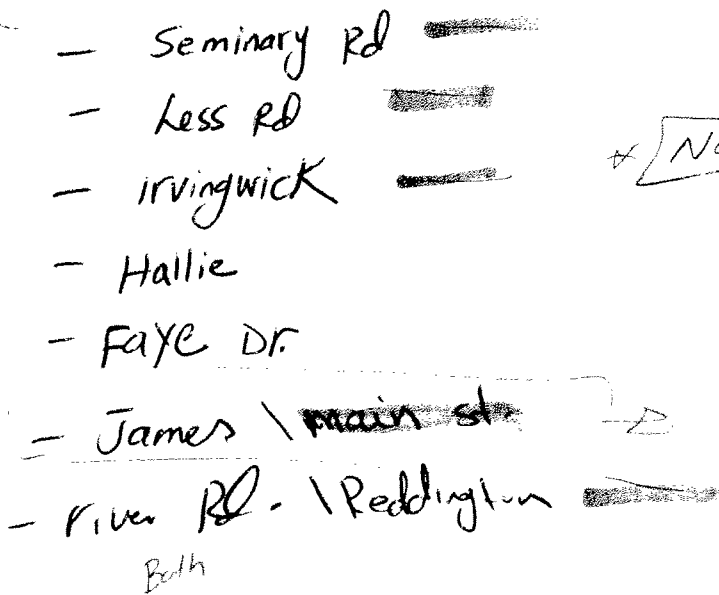 - Seminary Rd
- Less Rd
- irvingwick
* No
- Hallie
- Faye Dr.
- James \ main st.
- river Rd. \ Reddington
Both